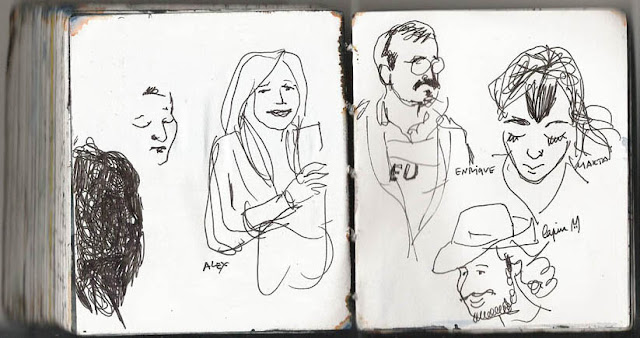 ALEX
EU
ENRIQUE
MARTA